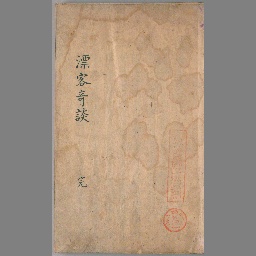 漂客奇談
完